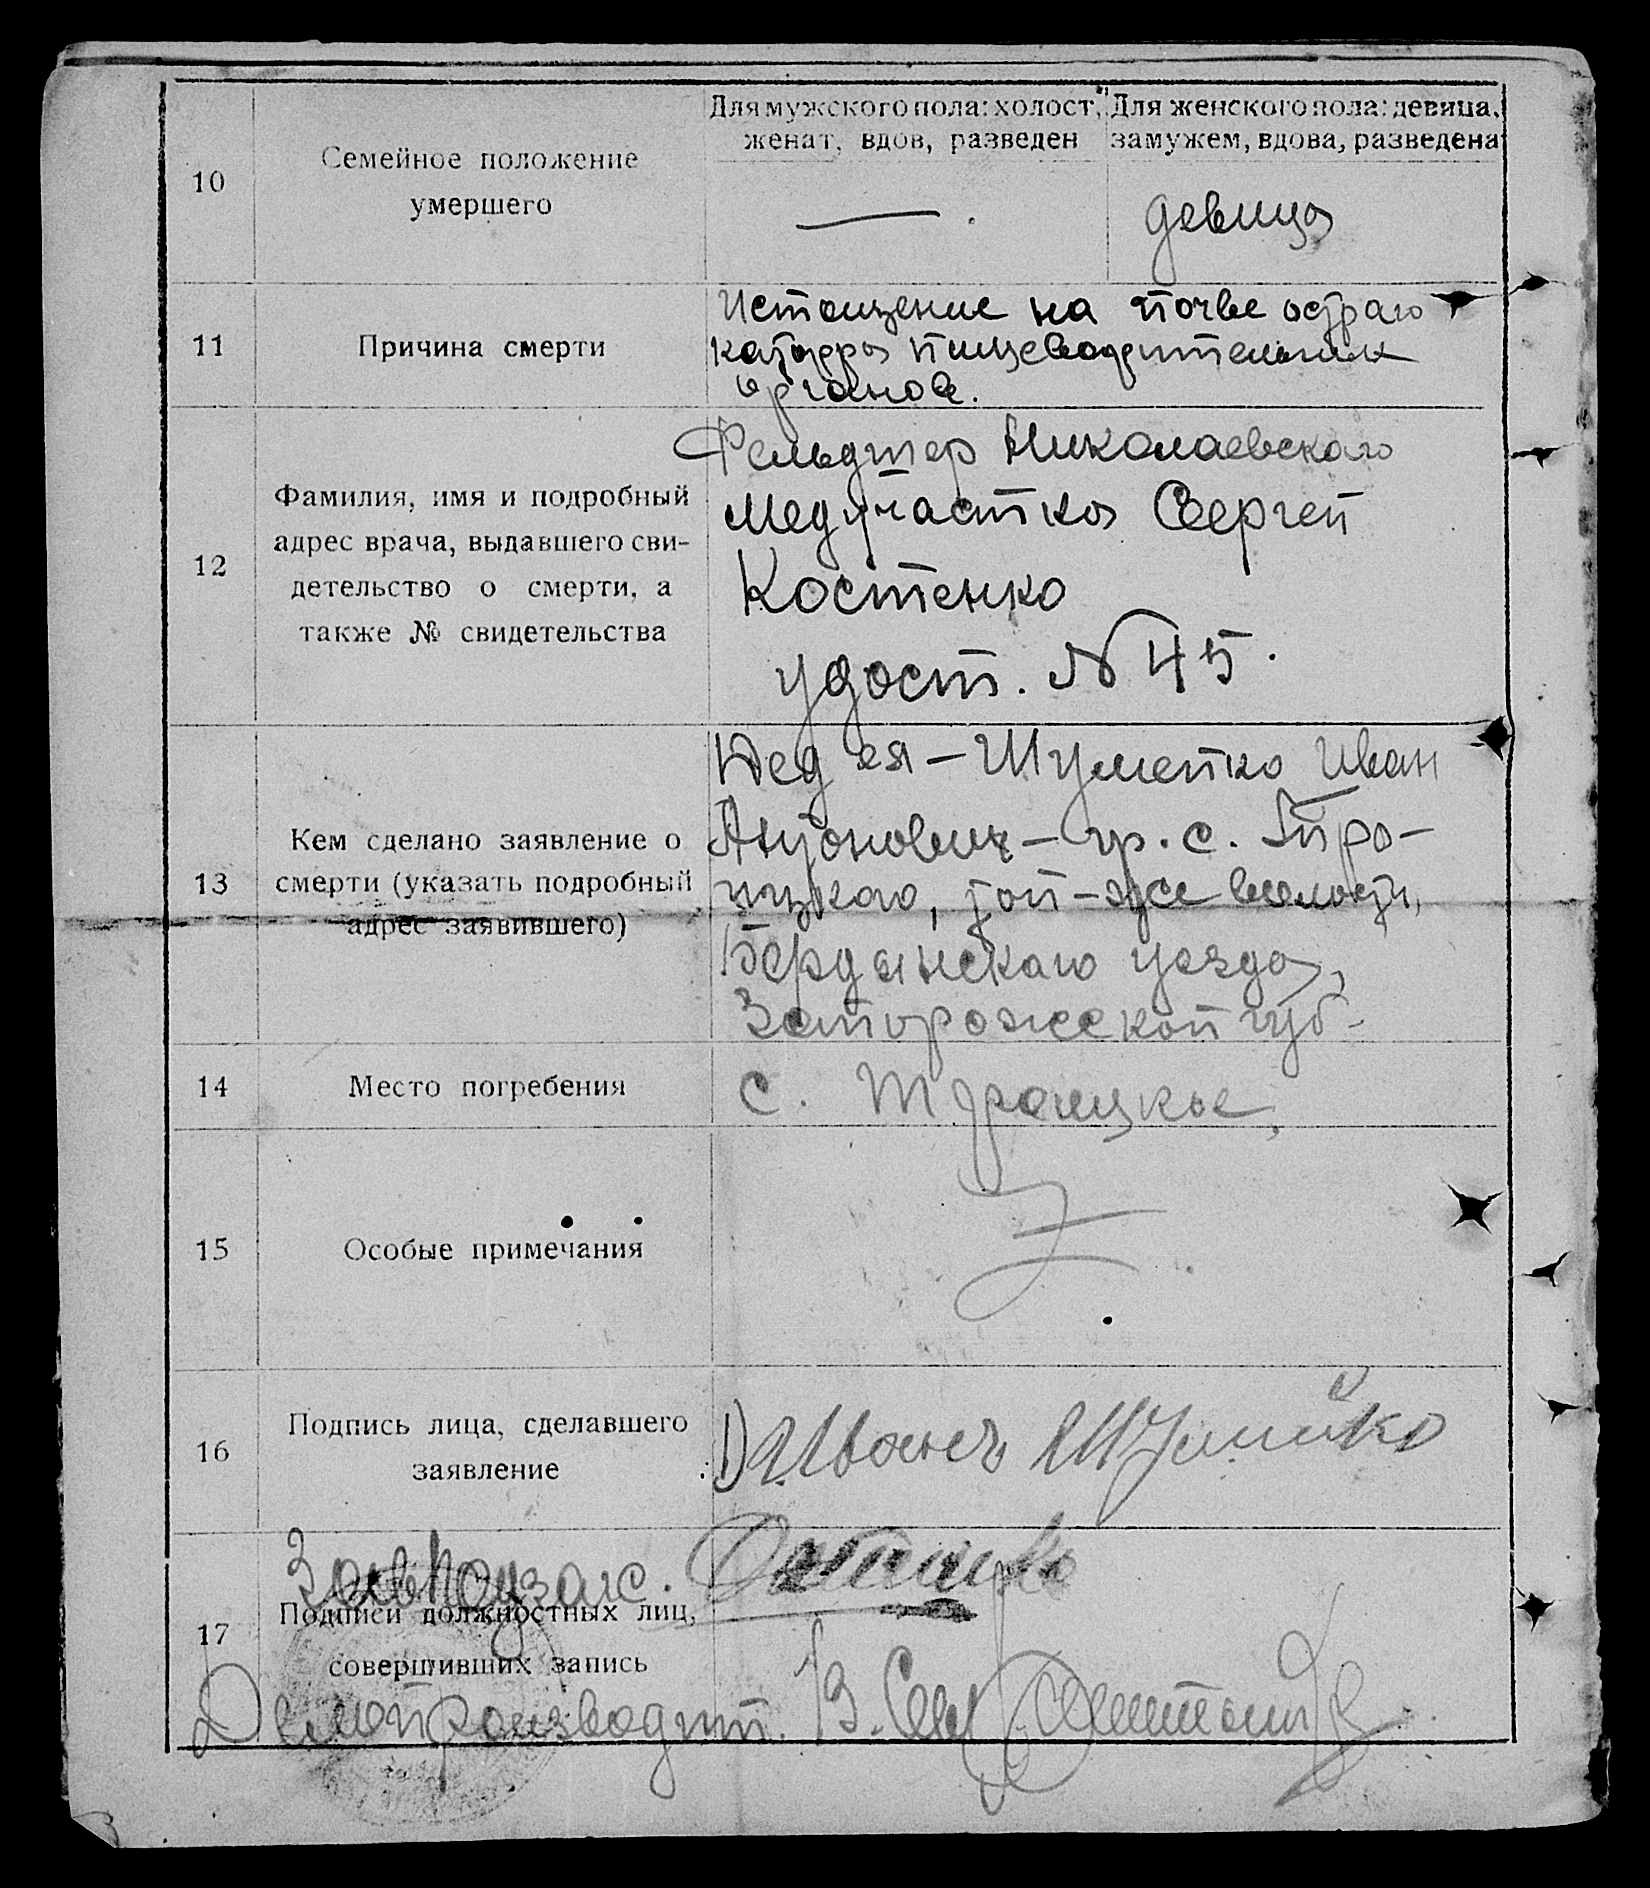 10
Семейное положение
умершего
Для мужского пола: холост,
женат, вдов, разведен
Для женского пола: девица,
замужем, вдова, разведена
—
девица
11
Причина смерти
Истощение на почве остраго
катарра пищеварительных
органов.
12
Фамилия, имя и подробный
адрес врача, выдавшего сви-
детельство о смерти, а
также № свидетельства
Фельдшер Николаевского
медучастка Сергей
Костенко
удост. № 45.
13
Кем сделано заявление о
смерти (указать подробный
адрес заявившего)
Дед ея – Шумейко Иван
Антонович – гр. с. Тро-
ицкаго, той-же волости,
Бердянскаго уезда,
Запорожской губ-
14
Место погребения
с. Троицкое,
15
Особые примечания
16
Подпись лица, сделавшего
заявление
1) Иванъ Шумейко
17
Подписи должностных лиц,
совершивших запись
Делопроизводит. В.